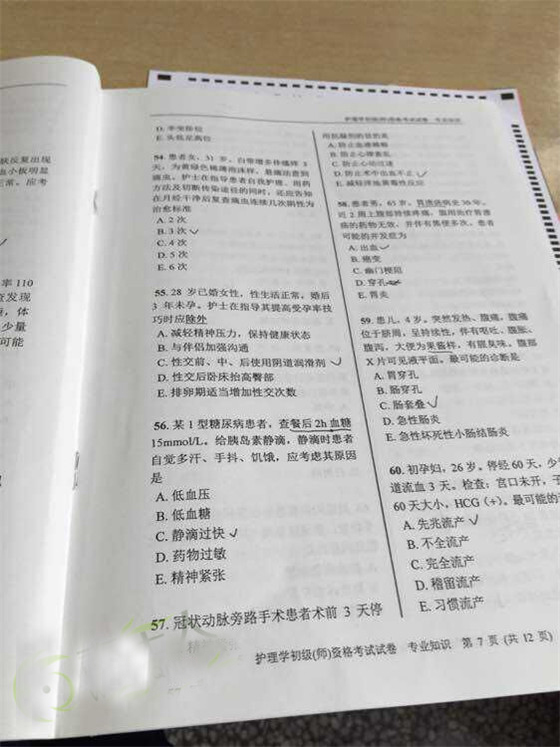 状反复出现
血小板明显
正常。应考
率 110
查发现
，体
少量
可能
护理学初级(师)资格考试试卷 专业知识
D. 辛变除位
E. 头低足高位
54. 患者女，31 岁。白带增多伴瘙痒 3
天，为黄绿色稀薄泡沫样，悬滴法查到
滴虫。护士在指导患者自我护理、用药
方法及切断传染途径的同时，还应告知
在月经干净后复查滴虫连续几次阴性为
治愈标准
A. 2 次
B. 3 次
C. 4 次
D. 5 次
E. 6 次
55. 28 岁已婚女性，性生活正常，婚后
3 年未孕。护士在指导其提高受孕率技
巧时应除外
A. 减轻精神压力，保持健康状态
B. 与伴侣加强沟通
C. 性交前、中、后使用阴道润滑剂
D. 性交后卧床抬高臀部
E. 排卵期适当增加性交次数
56. 某 1 型糖尿病患者，查餐后 2h 血糖
15mmol/L。给胰岛素静滴，静滴时患者
自觉多汗、手抖、饥饿，应考虑其原因
是
A. 低血压
B. 低血糖
C. 静滴过快
D. 药物过敏
E. 精神紧张
57. 冠状动脉旁路手术患者术前 3 天停
用抗凝剂的目的是
A. 防止血液稀释
B. 防止心律紊乱
C. 防止心动过速
D. 防止术中出血不止
E. 减轻洋地黄毒性反应
58. 患者男，65 岁。胃溃疡病史 30 年。
近 2 周上腹部持续疼痛，服用治疗胃溃
疡的药物无效，并伴有黑便多次。患者
可能的并发症为
A. 出血
B. 癌变
C. 幽门梗阻
D. 穿孔
E. 胃炎
59. 患儿，4 岁。突然发热、腹痛，腹痛
位于脐周，呈持续性，伴有呕吐、腹胀、
腹泻，大便为果酱样，有腥臭味，腹部
X 片可见液平面。最可能的诊断是
A. 胃穿孔
B. 肠穿孔
C. 肠套叠
D. 急性肠炎
E. 急性坏死性小肠结肠炎
60. 初孕妇，26 岁。停经 60 天，少
道流血 3 天。检查：宫口未开，子
60 天大小，HCG（+）。最可能的
A. 先兆流产
B. 不全流产
C. 完全流产
D. 稽留流产
E. 习惯流产
护理学初级(师)资格考试试卷 专业知识 第 7 页 (共 12 页)